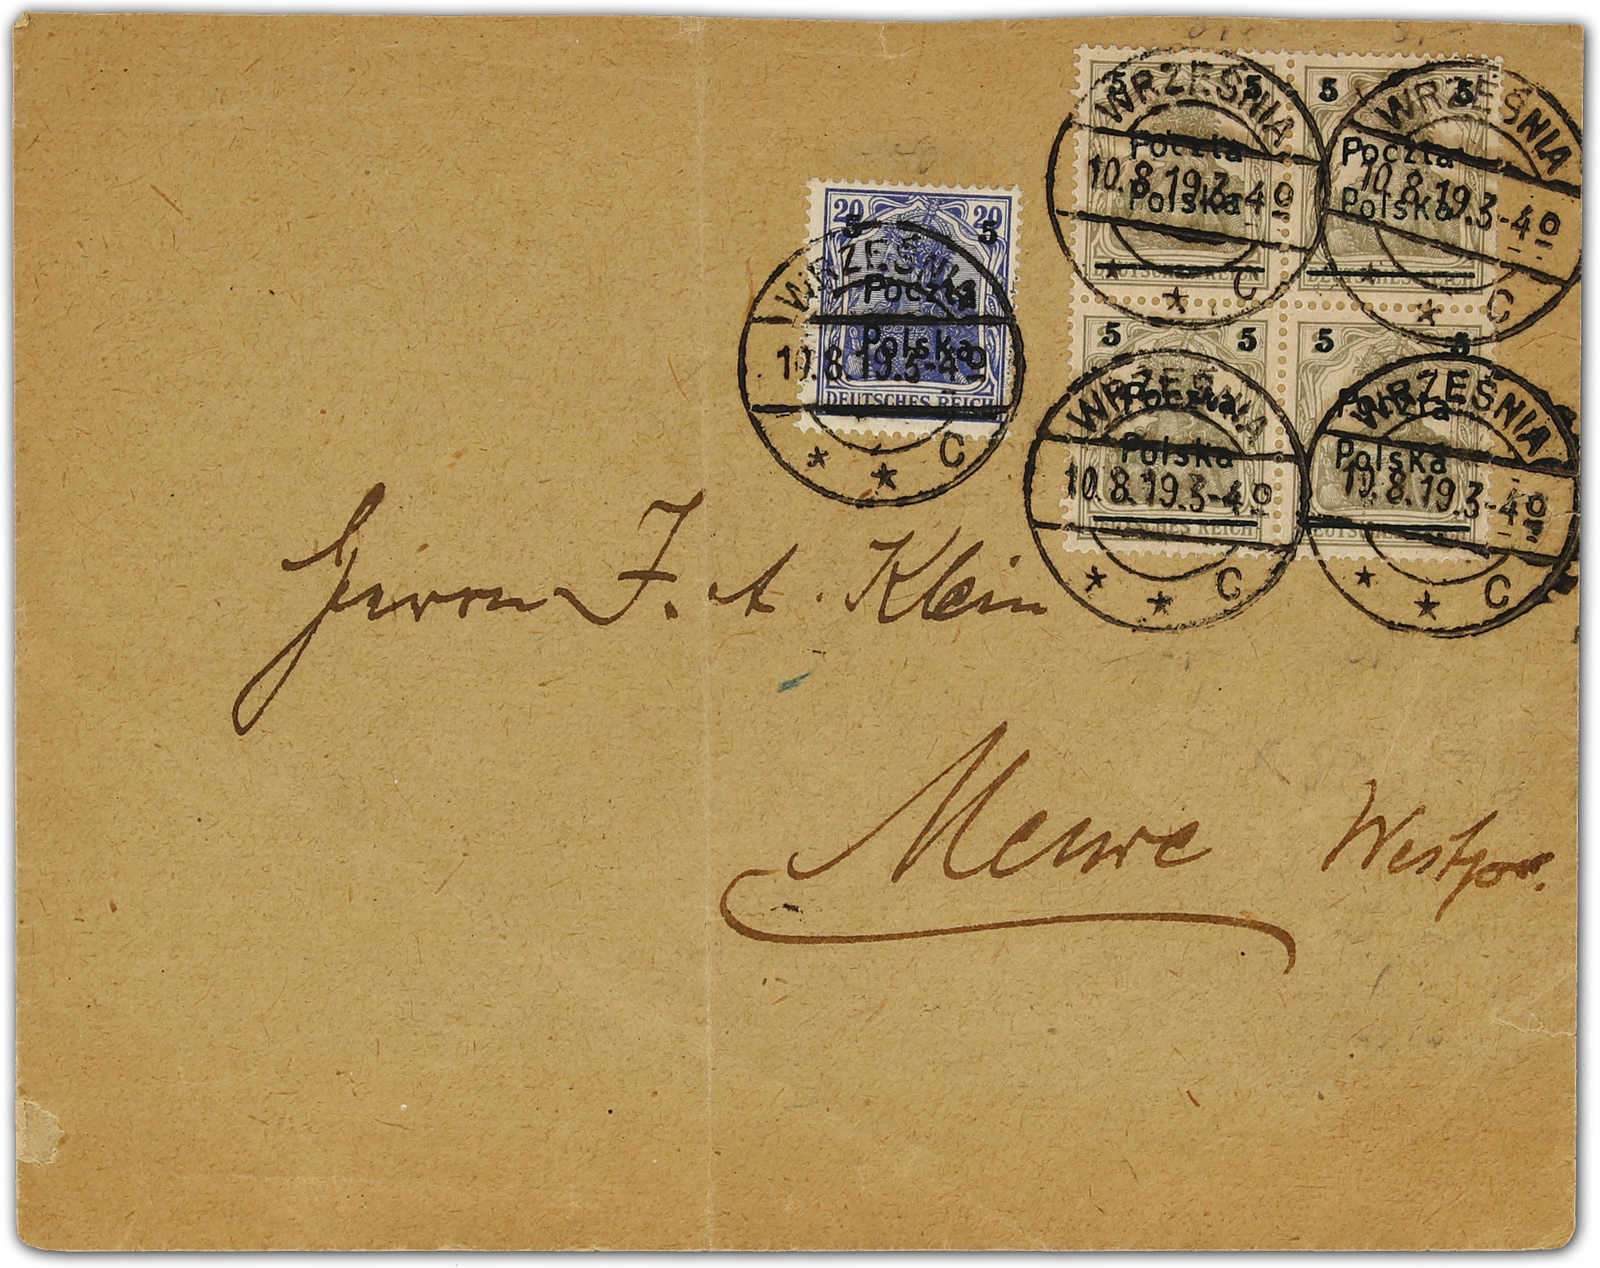 20 20
5 5
Poczta
Polska
DEUTSCHES REICH
WRZEŚNIA
10.8.19.3-4º
* * C
5 5
Poczta
Polska
DEUTSCHES REICH
WRZEŚNIA
10.8.19.3-4º
* * C
5 5
Poczta
Polska
DEUTSCHES REICH
WRZEŚNIA
10.8.19.3-4º
* * C
5 5
Poczta
Polska
DEUTSCHES REICH
WRZEŚNIA
10.8.19.3-4º
* * C
5 5
Poczta
Polska
DEUTSCHES REICH
WRZEŚNIA
10.8.19.3-4º
* * C
Herrn J. A. Klein
Mewe Westpr.